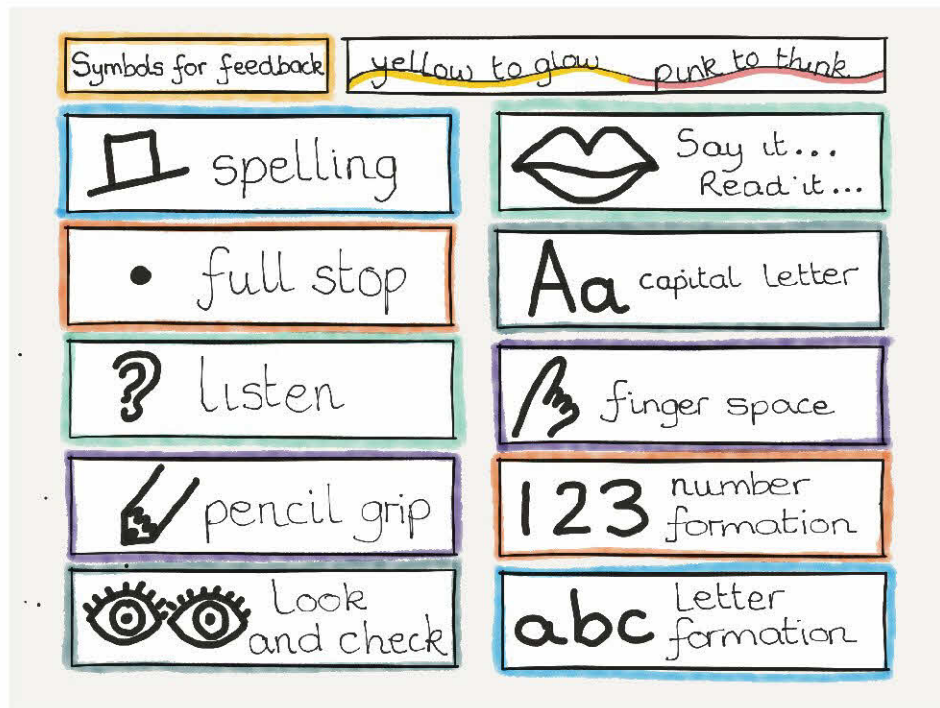 Symbols for feedback
yellow to glow pink to think
spelling
full stop
listen
pencil grip
Look
and check
Say it...
Read it...
Aa capital letter
finger space
123 number
formation
abc Letter
formation